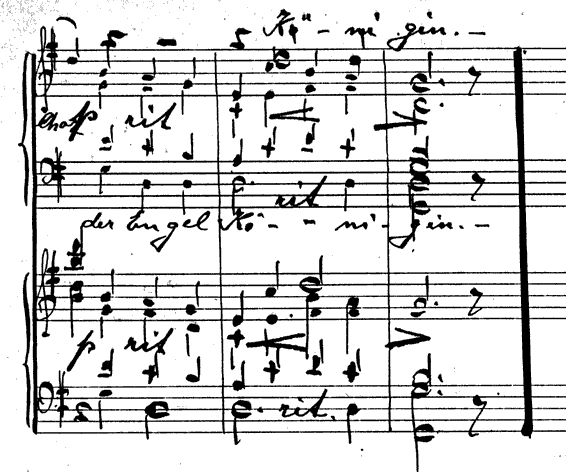 Kö - ni gin. -
p rit
rit
der Engel Kö - - ni - gin. -
p rit
rit.